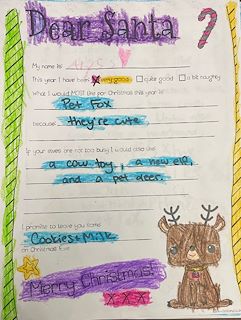 Dear Santa
My name is:
This year I have been: very good quite good a bit naughty
What I would MOST like for Christmas this year is:
Pet Fox
because: they're cute
If your elves are not too busy I would also like:
a cow toy, a new elf,
and a pet deer.
I promise to leave you some
Cookies & Milk
on Christmas Eve
Merry Christmas!
x x x